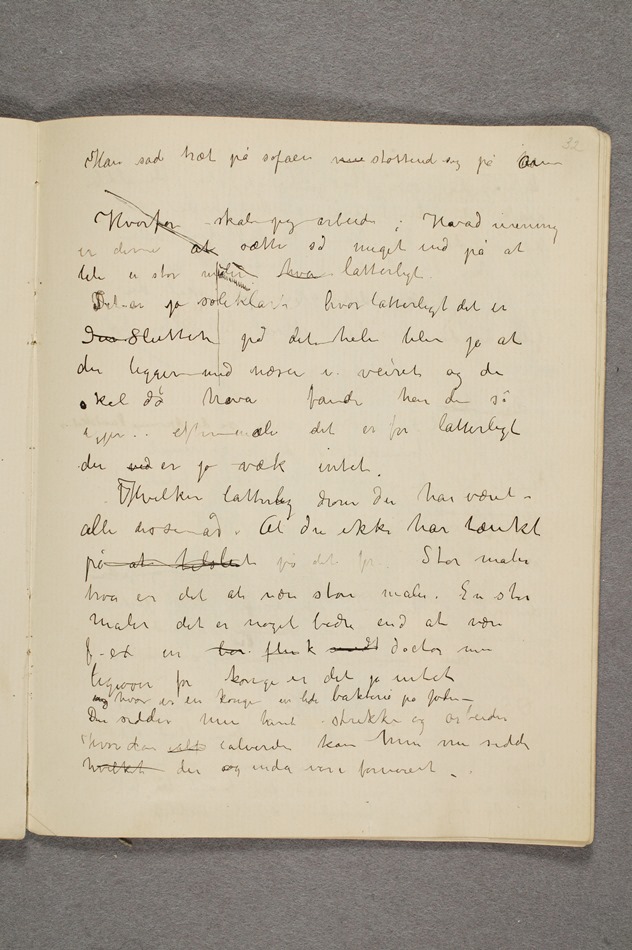 32
Han sad træt på sofaen støttend sig på
Hvorfor skal jeg arbeide ; Hvad mening
er denne at sætte så meget ind på at
blive en stor maler hva latterligt.
Det er jo soleklart hvor latterligt det er
Den Slutten på det hele blir jo at
du ligger med næsen i veiret og de
skal då fanden han den så
det er for latterligt
du ved er jo væk intet.
Hvilken latterlig drøm du har været
alle disse år. At du ikke har tænkt
på at tilslut på det før. Stor maler
hva er det at være stor maler. En stor
maler det er noget bedre end at være
f. ex en flink doctor men
ligeover for konge er det jo intet
hvor er en konge en lide bakterie på jorden –
Du sidder nu havd strekke og arbeider
Hvordan kan hun nu sidde
hvilket der og enda være fornøiet.